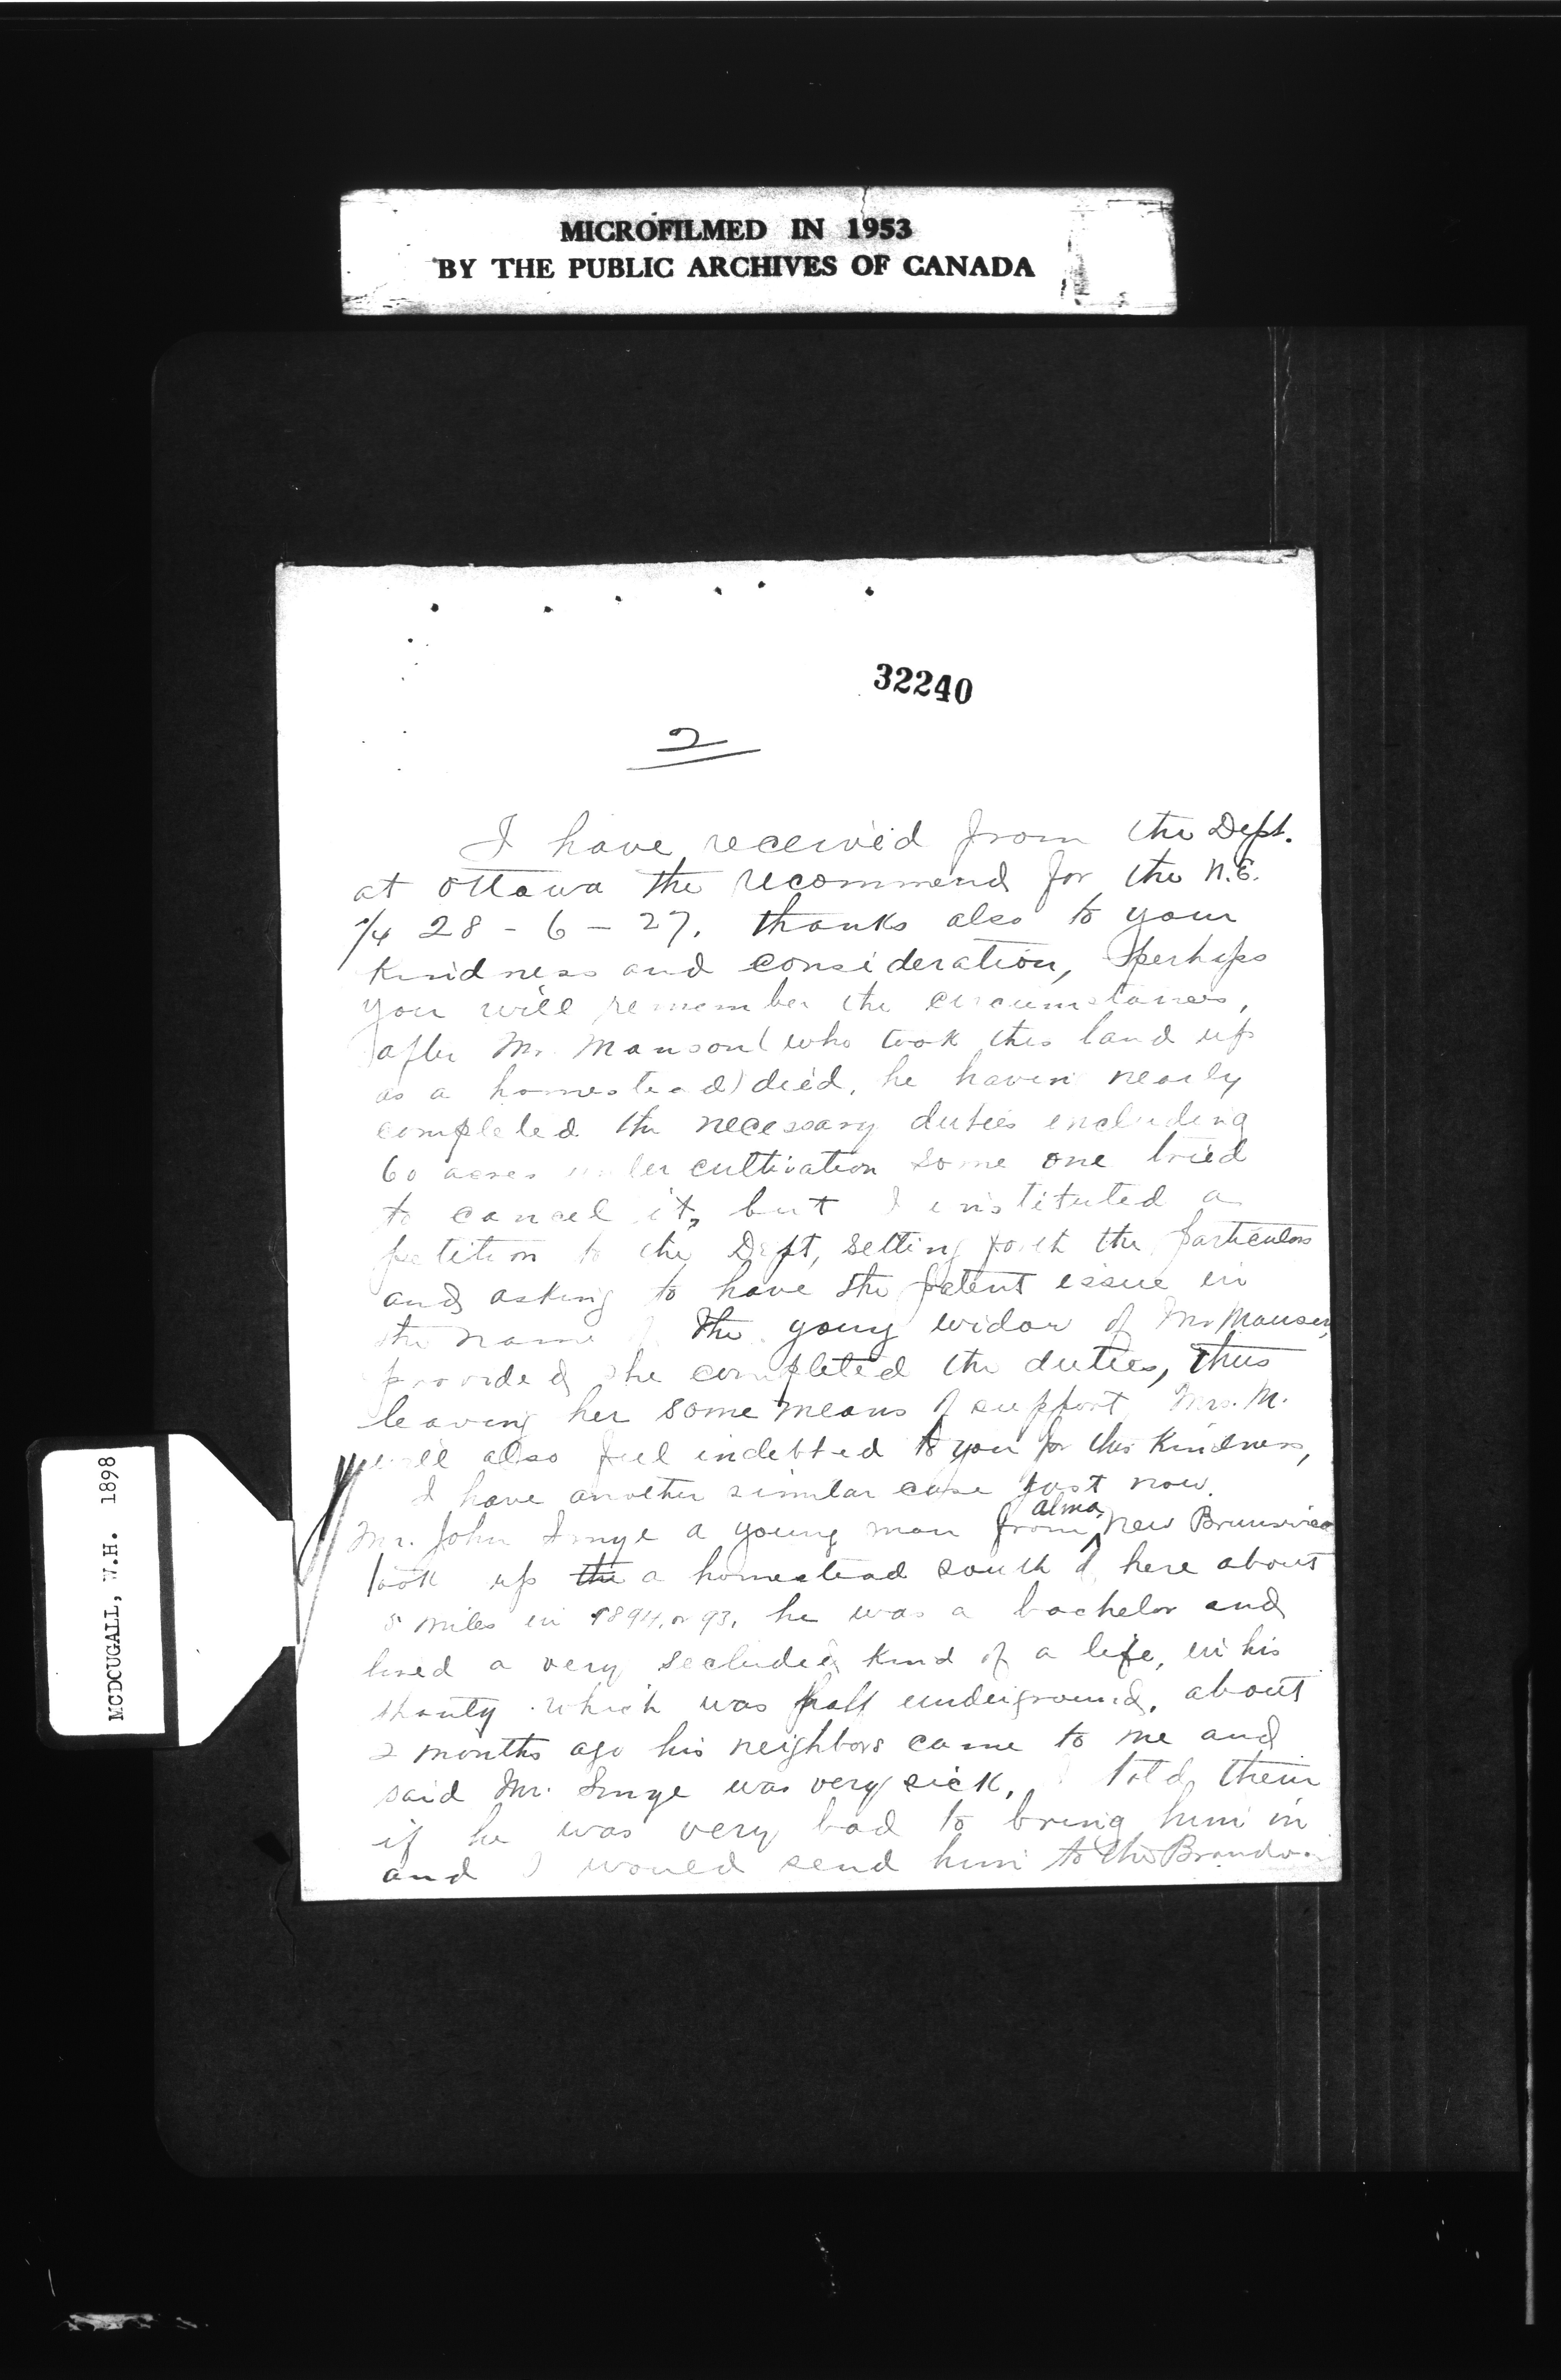 MICROFILMED IN 1953
BY THE PUBLIC ARCHIVES OF CANADA
32240
2
I have received from the Dept.
at Ottawa the recommend for the N.E.
1/4 28 - 6 - 27. thanks also to your
kindness and consideration, perhaps
you will remember the circumstances,
after Mr. Manson (who took this land up
as a homestead) died, he havin nearly
completed the necessary duties including
60 acres under cultivation some one tried
to cancel it, but I instituted a
petition to the Dept, setting forth the particulars
and asking to have the patent issue in
the name of the young widow of Mr Manson,
provided she completed the duties, thus
leaving her some means of support, Mrs. M.
will also feel indebted to you for this kindness,
I have another similar case just now.
Mr. John a young man from ^alma, New Brunswick
took up the a homestead south of here about
5 miles in 1894, or 93, he was a bachelor and
lived a very secluded kind of a life, in his
shanty which was half underground, about
2 months ago his neighbors came to me and
said Mr. was very sick, I told them
if he was very bad to bring him in
and I would send him to the Brandon
MCDOUGALL, W.H. 1898